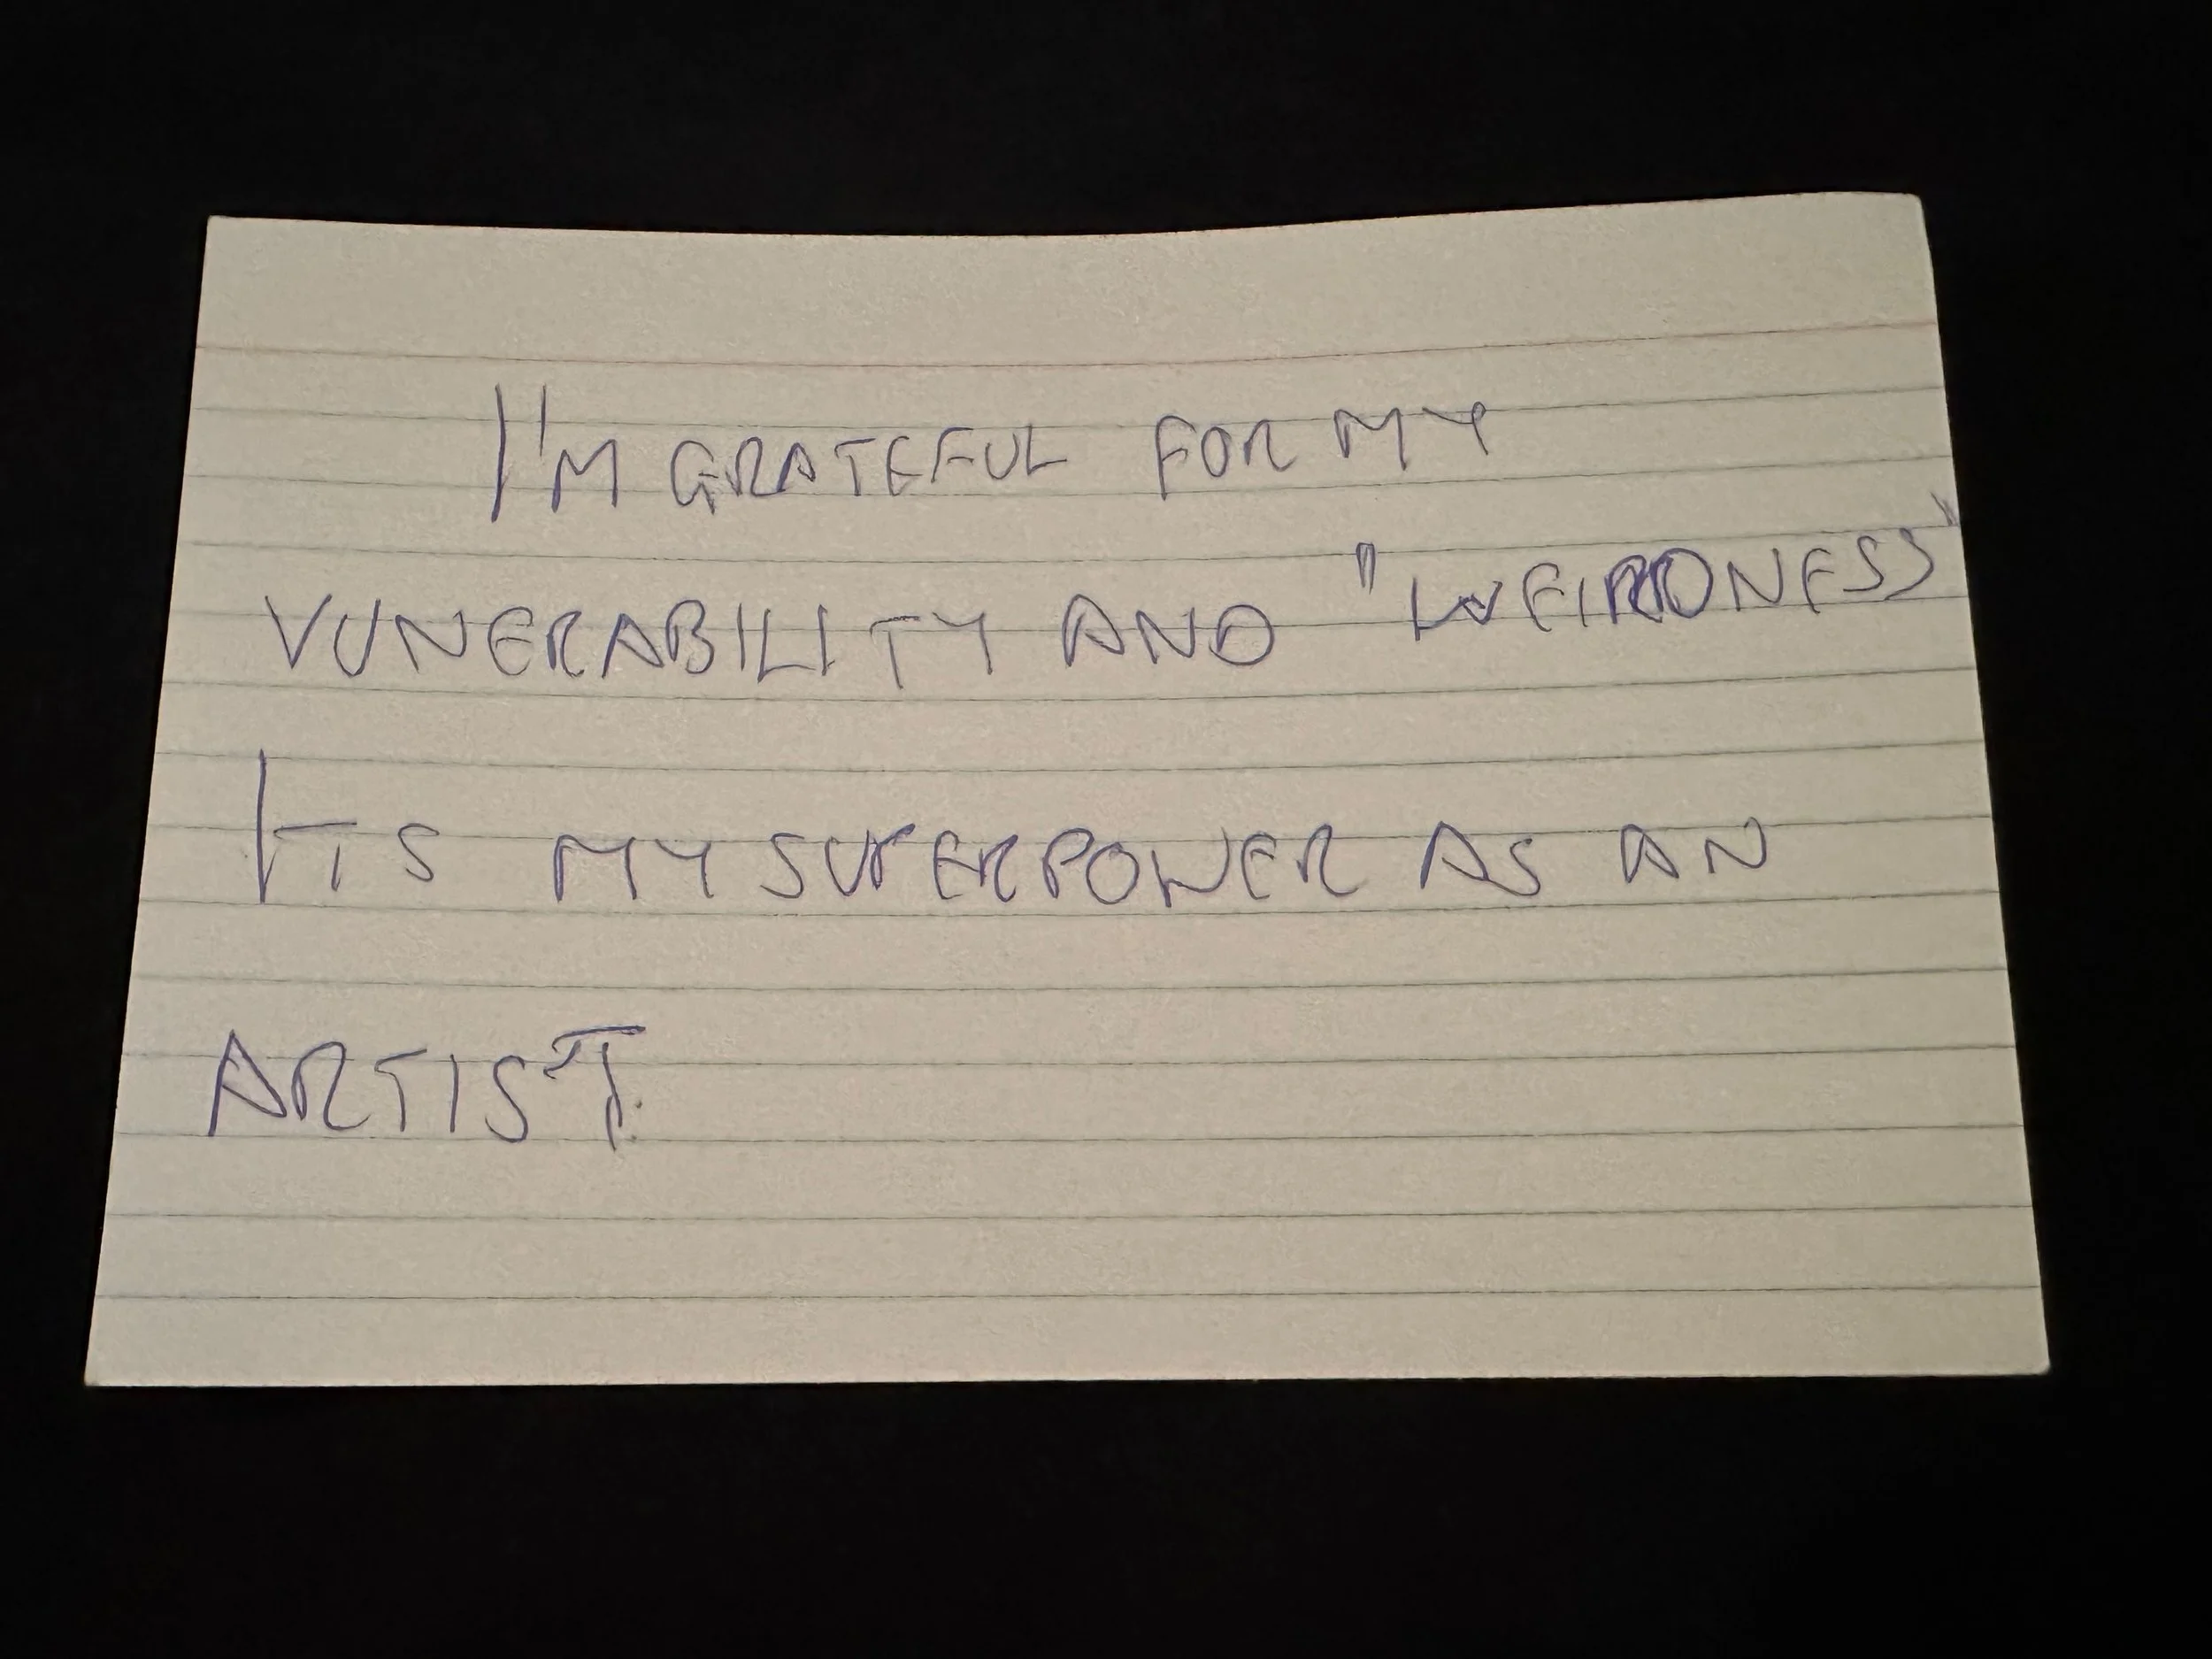 I'M GRATEFUL FOR MY
VUNERABILITY AND "WEIRDNESS"
ITS MY SUPERPOWER AS AN
ARTIST.